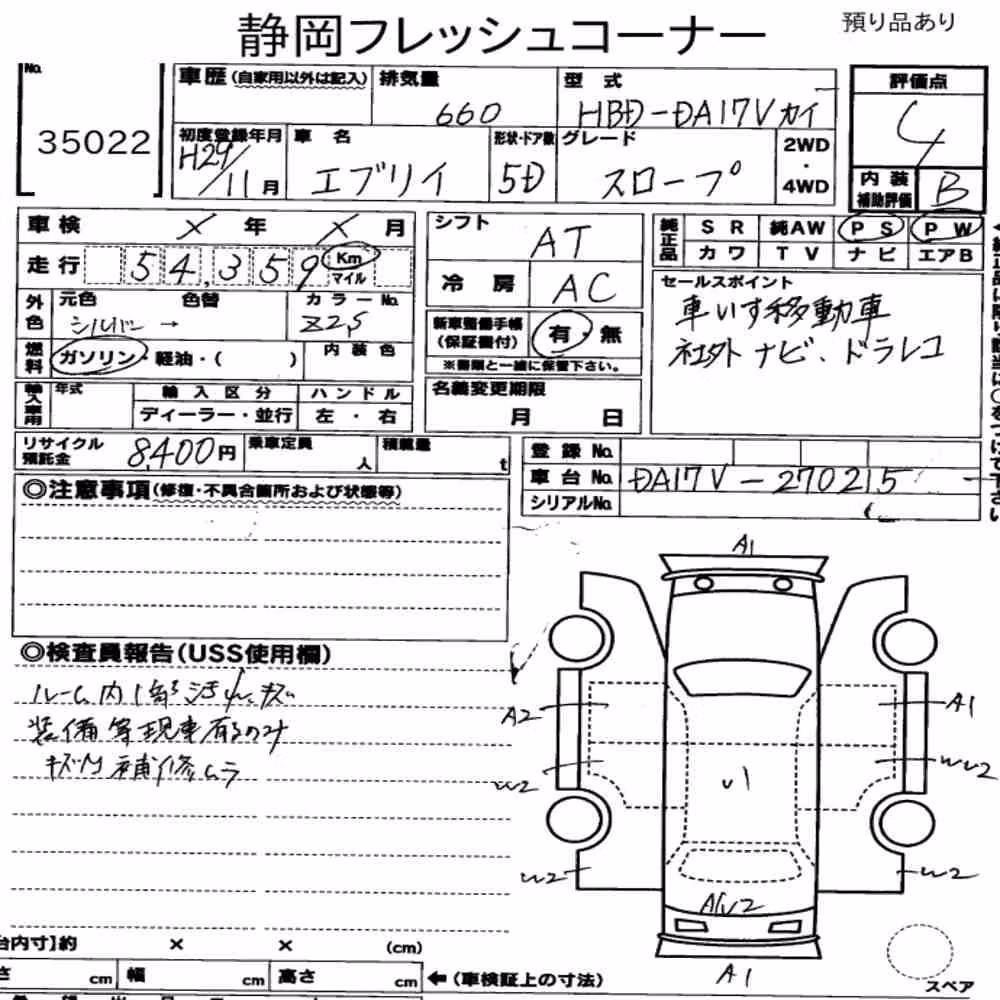 静岡フレッシュコーナー
預り品あり
No.
35022
車歴(自家用以外は記入)
排気量
660
型式
HBD-DA17Vカイ
評価点
4
初度登録年月
H29/11月
車名
エブリイ
形状・ドア数
5D
グレード
スロープ
2WD
・
4WD
内装
補助評価
B
車検 × 年 × 月
走行 54,359 Km
マイル
シフト
AT
冷房
AC
純正品
SR 純AW PS PW
カワ TV ナビ エアB
外色
元色 色替
シルバー →
カラーNo.
Z2S
燃料
ガソリン・軽油・( )
内装色
新車整備手帳
(保証書付)
有・無
※書類と一緒に保管下さい。
セールスポイント
車いす移動車
社外ナビ、ドラレコ
輸入車用
年式
輸入区分
ディーラー・並行
ハンドル
左・右
名義変更期限
月 日
リサイクル
預託金
8,400円
乗車定員
人
積載量
t
登録No.
車台No. DA17V-270215
シリアルNo.
◎注意事項(修復・不具合箇所および状態等)
◎検査員報告(USS使用欄)
ルーム内1部汚れ、キズ
装備等現車有るのみ
キズ凹補修ムラ
A1
A2
A1
W2
U1
WU2
W2
W2
AU2
A1
台内寸】約 × × (cm)
cm 幅 cm 高さ cm
←(車検証上の寸法)
スペア